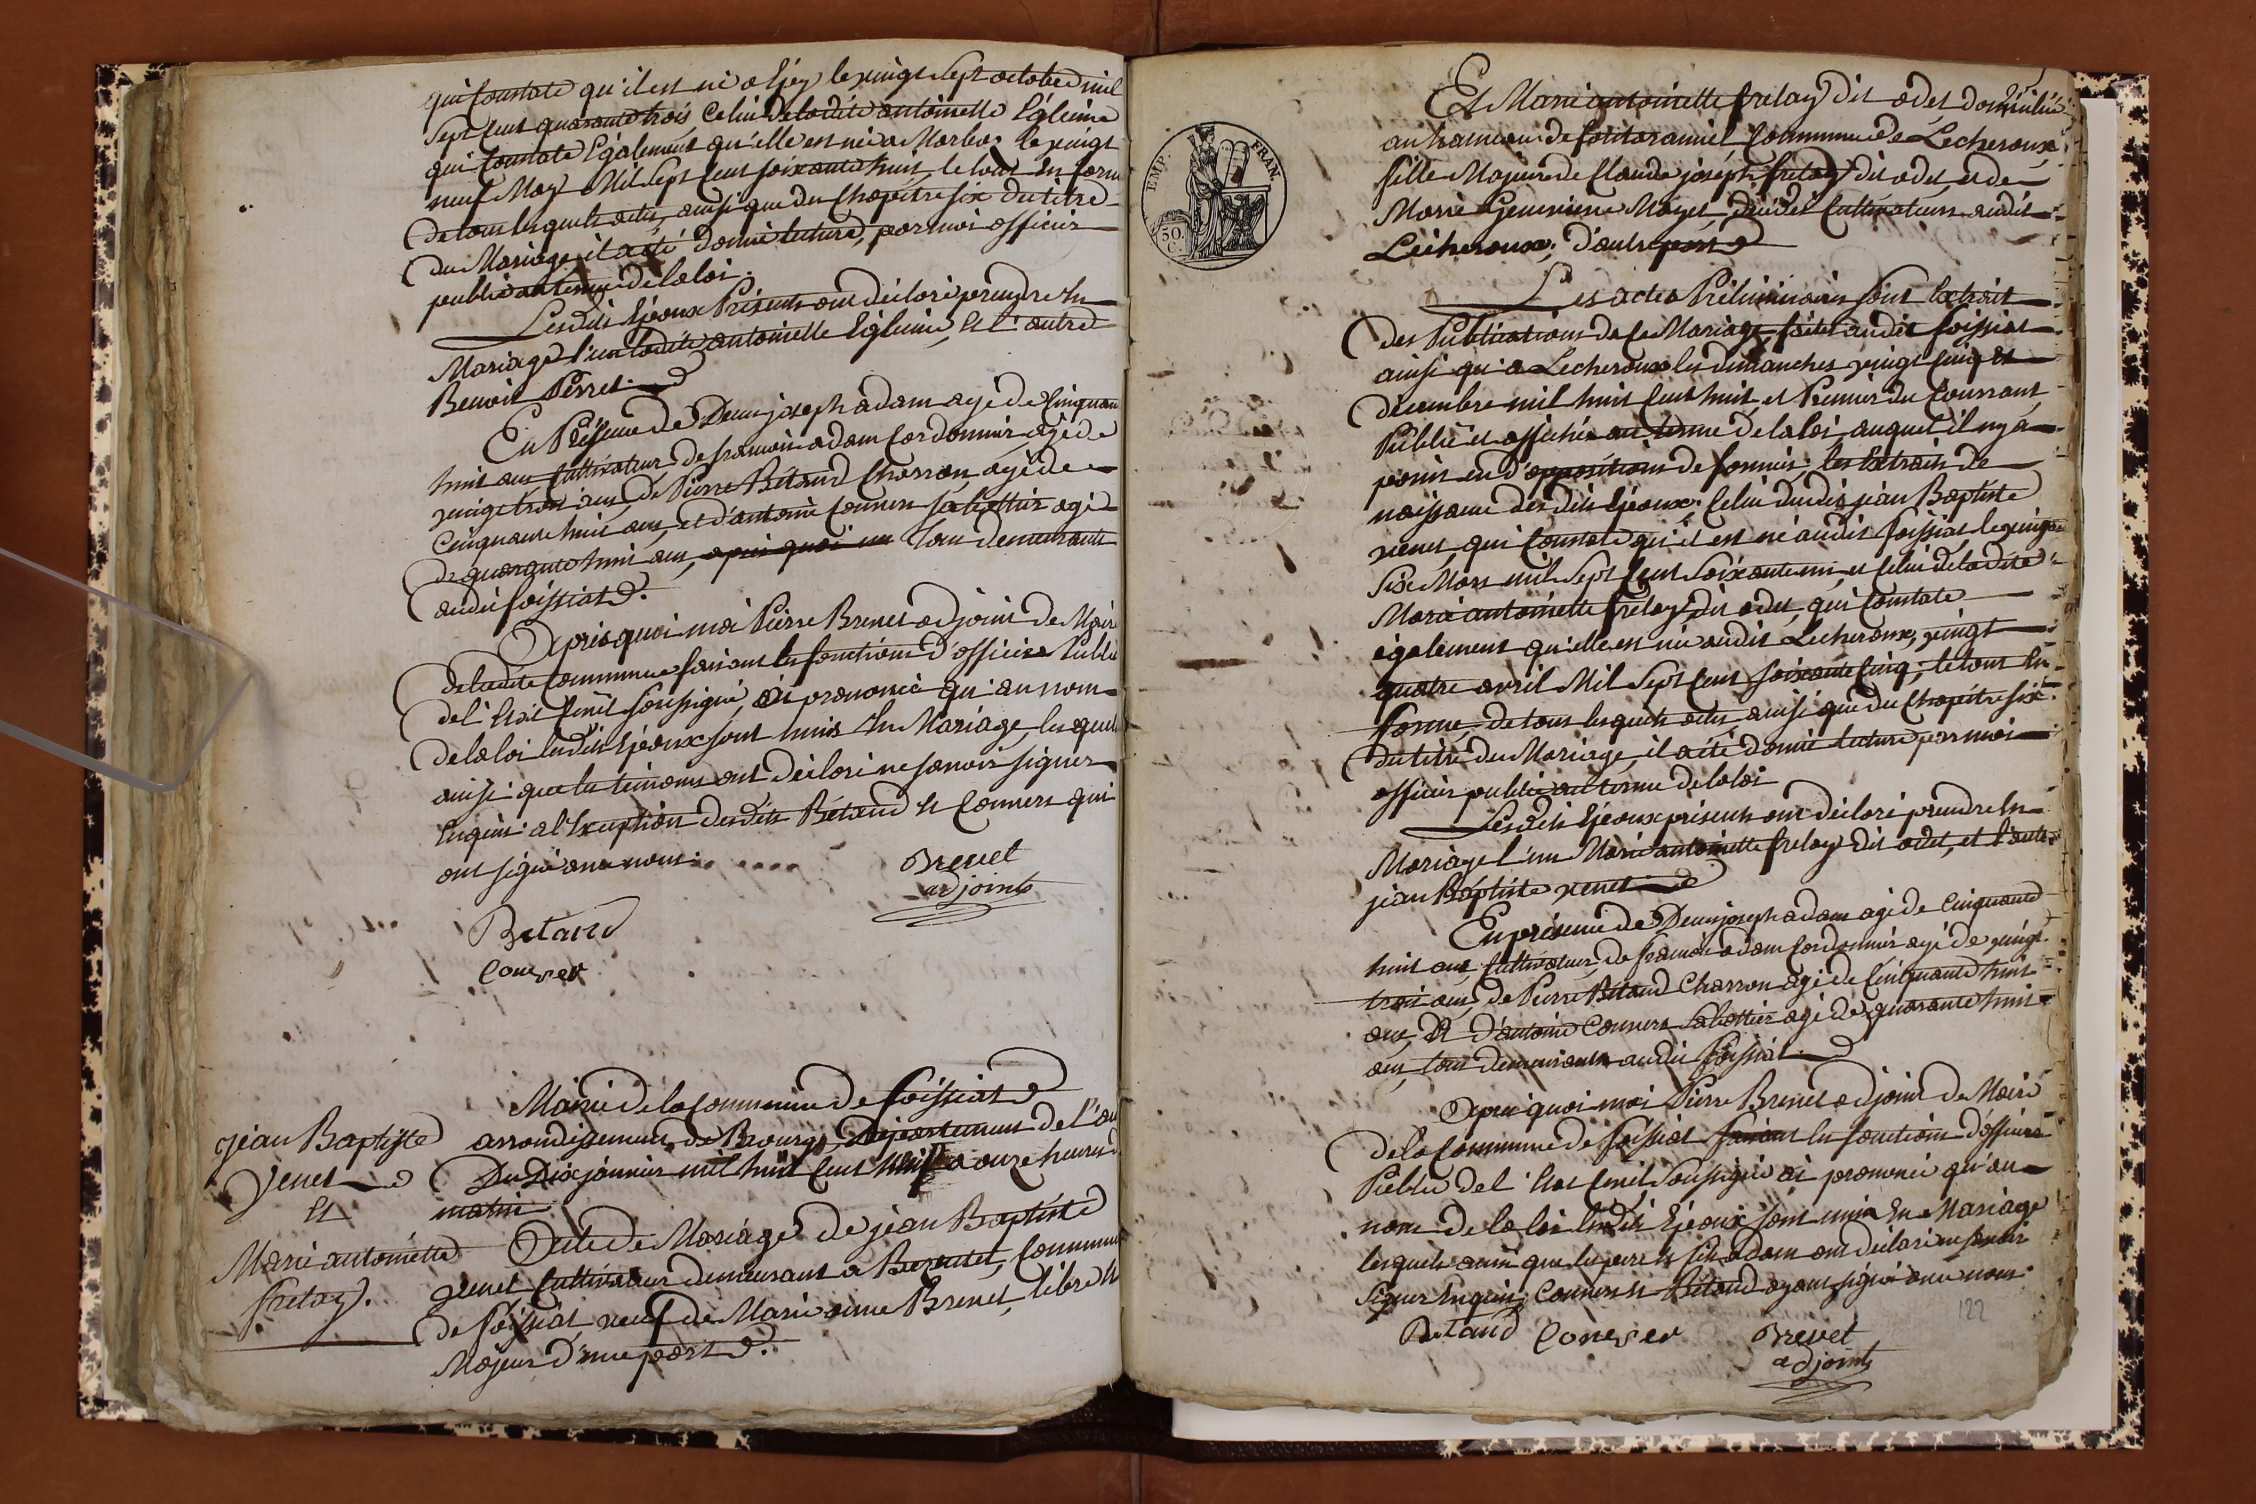 qui Constate qu'il est né a Ejéy le vingt Sept octobre mil
Sept Cent quarante trois, Celui de ladite antoinette
qui Constate Egalement qu'elle est née a Marboz le vingt
neuf May Mil Sept Cent soixante huit, le tout En form
De tous lesquels actes, ainsi que du Chapitre six du titre
du Mariage il a été donné lecture, par moi officier
public au terme de la loi.
Lesdits Epoux Présents ont déclaré prendre En
Mariage l'un ladite antoinette et l'autre
Benoit Perret.
En Présence de Denis joseph adam agé de Cinquan
huit ans Cultivateur, de françois adam Cordonnier, agé de
vingt trois ans, de Pierre Bétand Charron, agé de
Cinquante huit ans, et d'antoine Convers Sabottier agé
de quarante huit ans, après quoi tous demeurants
audit foissiat.
Après quoi moi Pierre Brevet adjoint de Mair
de ladite Commune faisant les fonctions d'officier Public
de l'Etat Civil soussigné, ai prononcé qu'au nom
de la loi lesdits Epoux sont unis En Mariage, lesquels
ainsi que les témoins ont déclaré ne savoir signer
Enquis a l'Exception desdits Bétand et Convers qui
ont signé avec nous.
Brevet
adjoint
Betand
Conver
Mairie de la Commune de foissiat
arrondissement de Bourg, Département de l'ain
Du Dix janvier mil huit Cent neuf a onze heures d
matin
jean Baptiste
Venet
Et
Marie antoinette
frelay.
Acte de Mariage de jean Baptiste
venet Cultivateur demeurant a Commune
de foissiat, veuf de Marie anne Brevet, libre et
Majeur d'une part.
Et Marie antoinette frelay dit odet, domiciliée
au hameau de Commune de Lecheroux
fille Majeure de Claude joseph frelay dit odet et de
Marie Genevieve Moyet, Cultivateurs audit
Lecheroux, d'autre part
Les actes Préliminaires sont Extrait
des Publications de Ce Mariage, faites audit foissiat
ainsi qu'a Lecheroux les dimanches vingt Cinq
décembre mil huit Cent huit, et Premier du Courrant
Publié et affiché au terme de la loi auquel il ny a
point eu d'oppositions de formés; les Extraits de
naissance desdits Epoux: Celui dudit jean Baptiste
venet, qui Constate qu'il est né audit foissiat le vingt
Six Mars mil Sept Cent Soixante un et Celui de ladite
Marie antoinette frelay dit odet, qui Constate
également qu'elle est née audit Lecheroux, vingt
quatre avril Mil Sept Cent soixante Cinq; le tout En
forme, de tous lesquels actes ainsi que du Chapitre six
du titre du Mariage, il a été donné lecture par moi
officier public au terme de la loi
Lesdits Epoux présents ont déclaré prendre En
Mariage l'un Marie antoinette frelay dit odet, et l'autre
jean Baptiste venet
En présence de Denis joseph adam agé de Cinquante
huit ans, Cultivateur, de françois adam Cordonnier agé de vingt
trois ans, de Pierre Bétand Charron agé de Cinquante huit
ans, Et d'antoine Convers Sabottier agé de quarante huit
ans, tous demeurants audit foissiat.
Après quoi moi Pierre Brevet adjoint de Maire
de la Commune de foissiat faisant les fonctions d'officier
Public de l'Etat Civil Soussigné ai prononcé qu'au
nom de la loi lesdits Epoux sont unis En Mariage
lesquels ainsi que les pere et fils adam ont déclaré ne savoir
Signer Enquis; Convers et Bétand ayant signé avec nous.
Betand Conver Brevet
adjoint
122
EMP. FRAN.
50.
C.